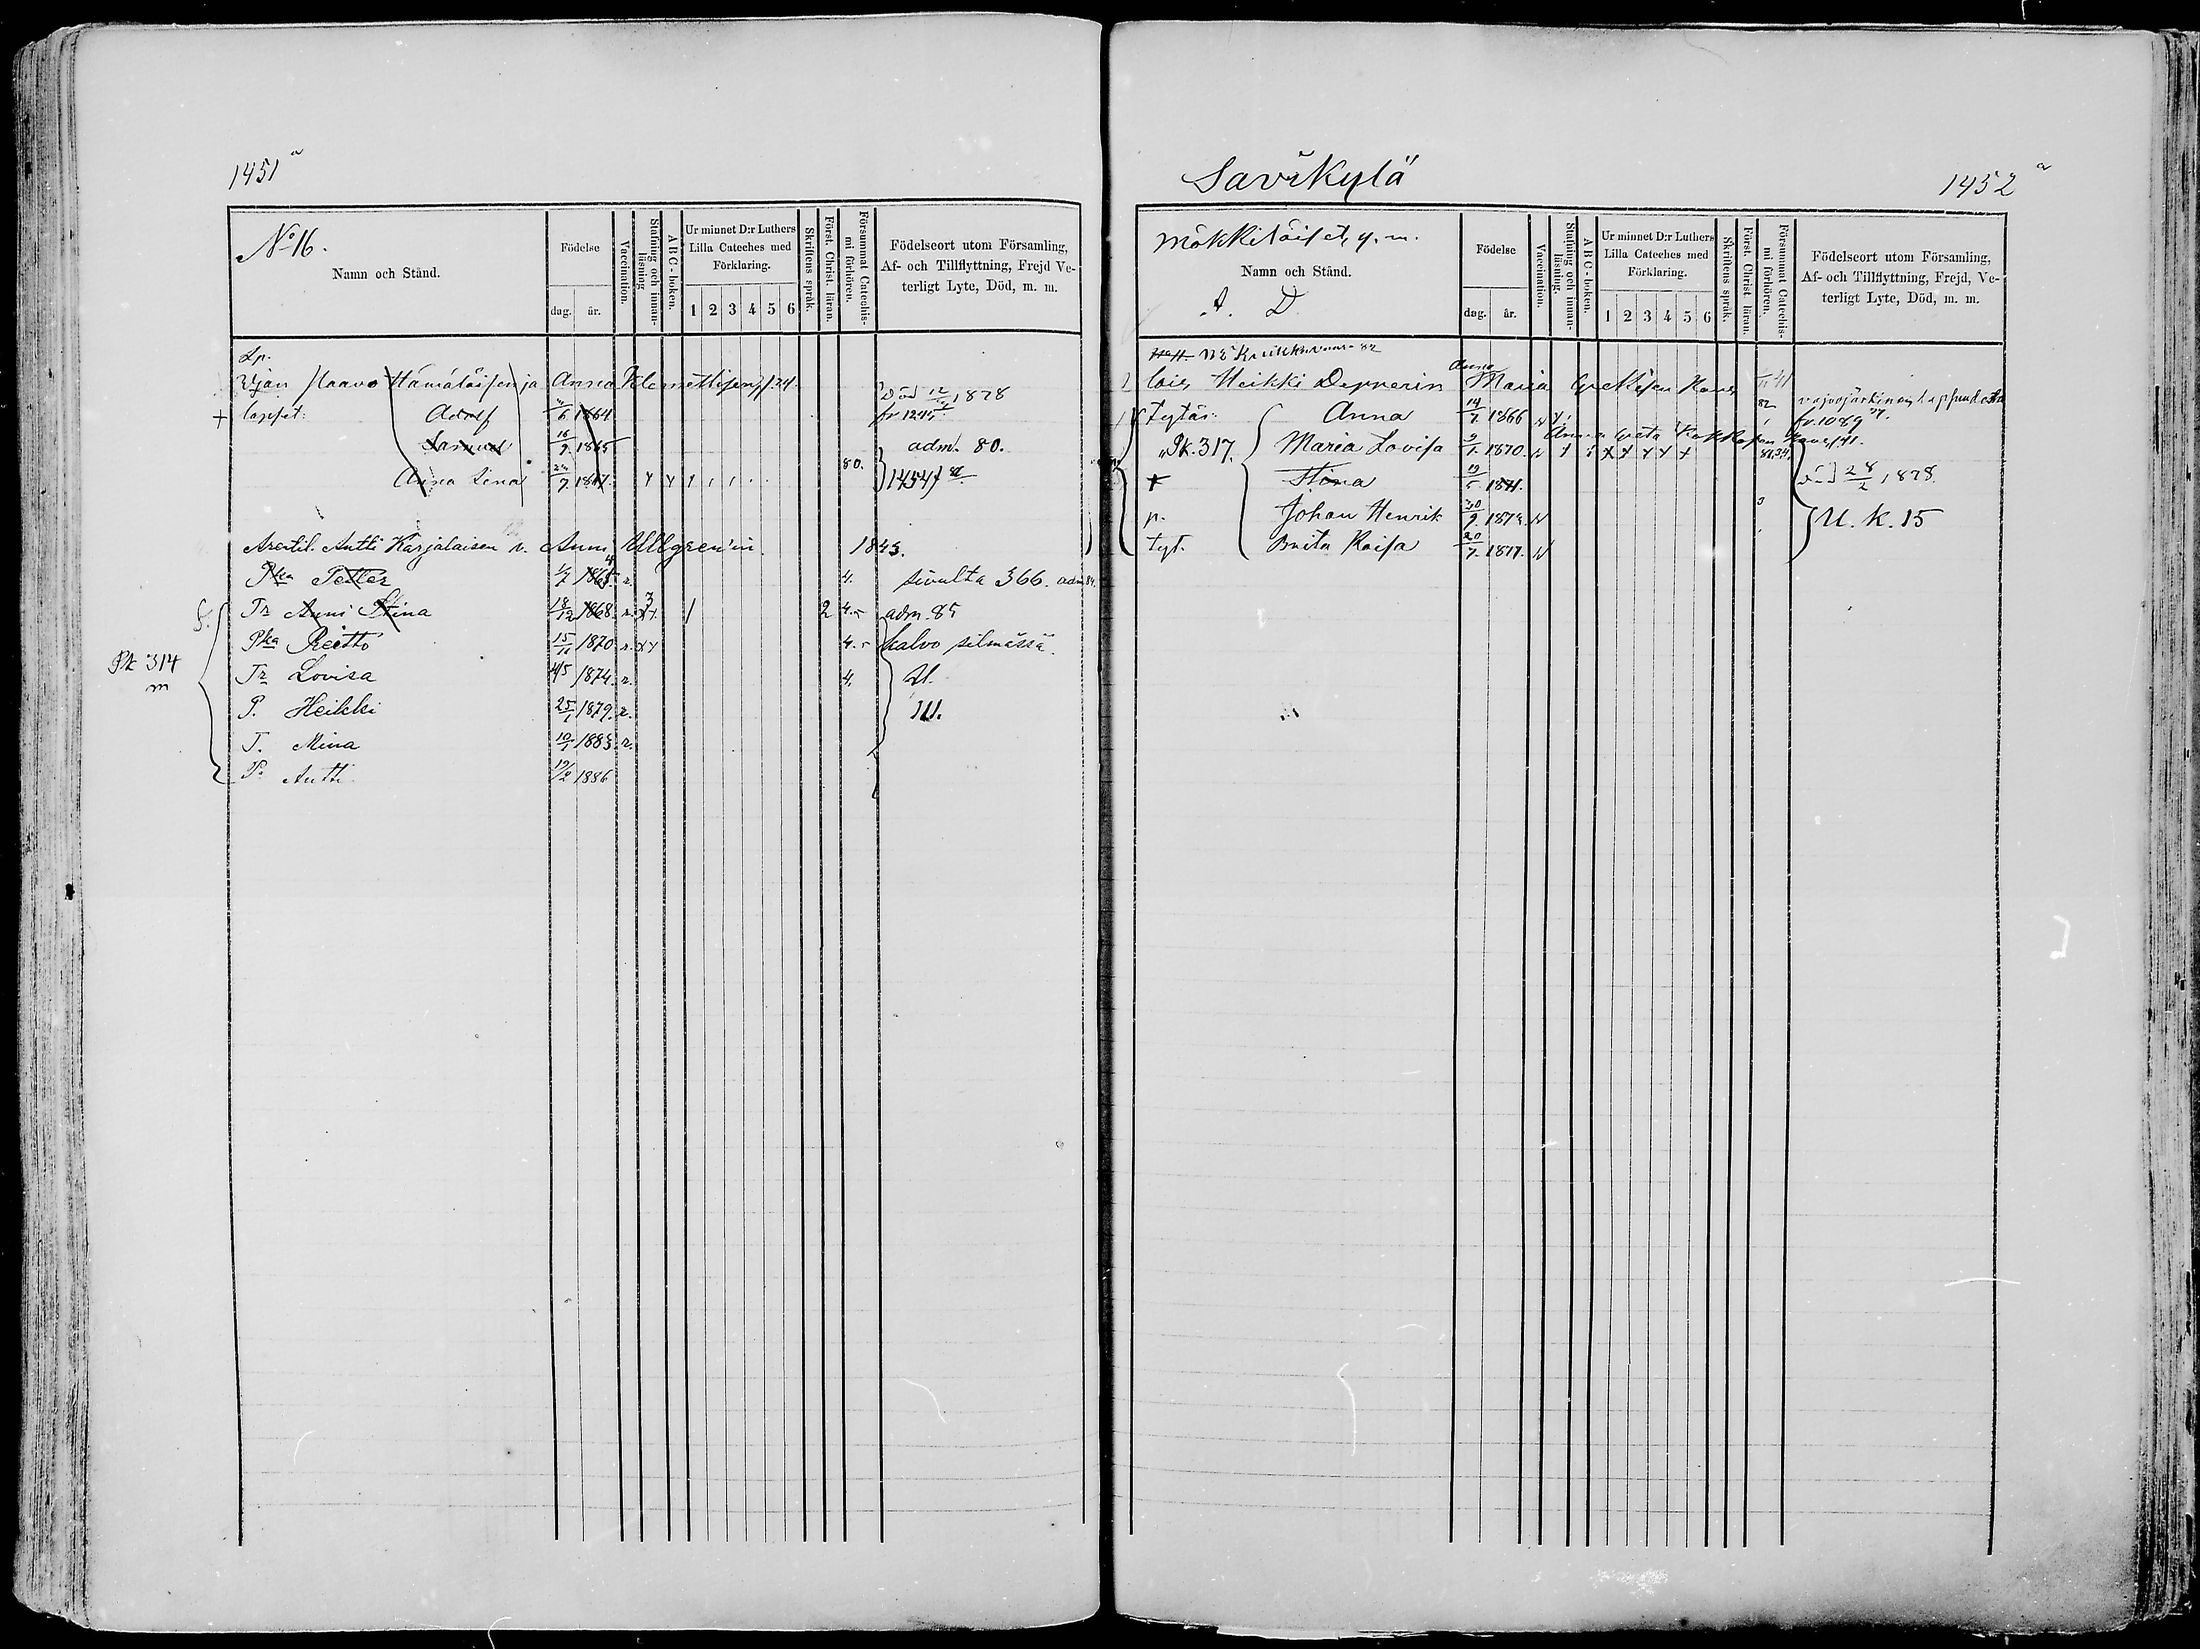 1451 a
No 16.
Namn och Stånd.
Födelse
dag. år.
Vaccination.
Stafning och innanläsning
ABC-boken.
Ur minnet D:r Luthers Lilla Cateches med Förklaring.
1 2 3 4 5 6
Skriftens språk.
Först. Christ. läran.
Försummat Catechismi förhören.
Födelseort utom Församling, Af- och Tillflyttning, Frejd Veterligt Lyte, Död, m. m.
Lp.
Paavo Hämäläisen ja Anna Klemettisen
+ lapset: Adolf 6 1864 Död 12 1878
Samuel 16/9 1865 adm. 80.
Anna Lena 7. 1867. 80. 1454
Antti Karjalaisen v. Anna Ullgren'in 1843.
Pka Petter 1865 r. 4. sivulta 366. adm 84.
Tr Anni Stina 18/12 1868 r. 2 4. adm. 85
Pka Reitto 15/11 1870 r. 4. kalvo silmässä.
Pk 314
m
Tr Lovisa 4/5 1874 r. 4. U.
P. Heikki 25/1 1879. r.
T. Mina 10/1 1883 r.
P. Antti 19/2 1886
Savikylä
1452 a
Mökkiläiset, y. m.
Namn och Stånd.
A. D
Födelse
dag. år.
Vaccination.
Stafning och innanläsning.
ABC-boken.
Ur minnet D:r Luthers Lilla Cateches med Förklaring.
1 2 3 4 5 6
Skriftens språk.
Först. Christ. läran.
Försummat Catechismi förhören.
Födelseort utom Församling, Af- och Tillflyttning, Frejd, Veterligt Lyte, Död, m. m.
Anna
lois, Heikki Depnerin Maria
tytär: Anna 14/7 1866 82 fr. 1089
Anna Greta Kokkosen
Pk. 317. Maria Lovisa 1870
+ Stina 19 1871. 28/2 1878.
p. Johan Henrik 30/9 1874 U. K. 15
tyt. Brita Kaisa 20/7. 1877.